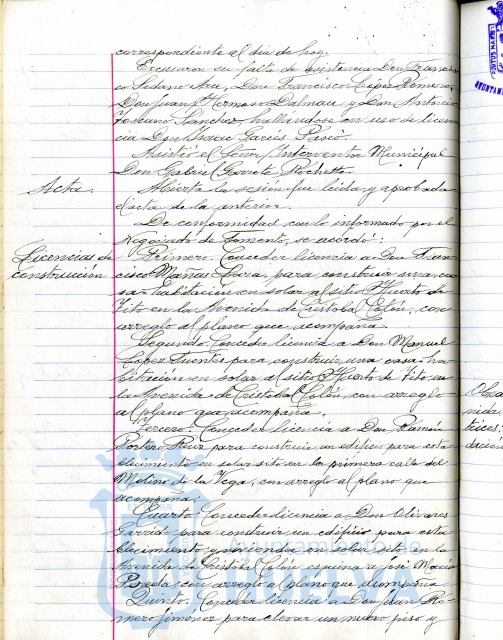 correspondiente al día de hoy.
Excusaron su falta de asistencia Don Francis-
co Sedano Arce, Don Francisco López Romero,
Don Juan Hermoso Dalmau y Don Antonio
Toscano Sánchez, hallándose en uso de licen-
cia Don Garcés
Asistió el Señor Interventor Municipal
Don Gabriel Garrote Rochette.
Acta.
Abierta la sesión fue leída y aprobada
acta de la anterior.
De conformidad con lo informado por el
Negociado de Fomento, se acordó:
Licencias de
construcción
Primero. Conceder licencia a Don Fran-
cisco Mañas para construir una ca-
sa-habitación en solar al sitio Huerto de
Vito en la Avenida de Cristobal Colón, con
arreglo al plano que acompaña.
Segundo. Conceder licencia a Don Manuel
López Fuentes para construir una casa-ha-
bitación en solar al sitio Huerto de Vito, en
la Avenida de Cristobal Colón, con arreglo
al plano que acompaña.
Tercero. Conceder licencia a Don Ramón
Portero Ruiz para construir un edificio para esta-
blecimiento en solar sito en la primera calle del
Molino de la Vega, con arreglo al plano que
acompaña.
Cuarto. Conceder licencia a Don Olivares
Garrido para construir un edificio para esta-
blecimiento y vivienda en solar sito en la
Avenida de Cristobal Colón esquina a José María
Pereda, con arreglo al plano que acompaña.
Quinto. Conceder licencia a Don Juan Ro-
mero Jiménez para elevar un nuevo piso y
Ayuntamiento de
HUELVA